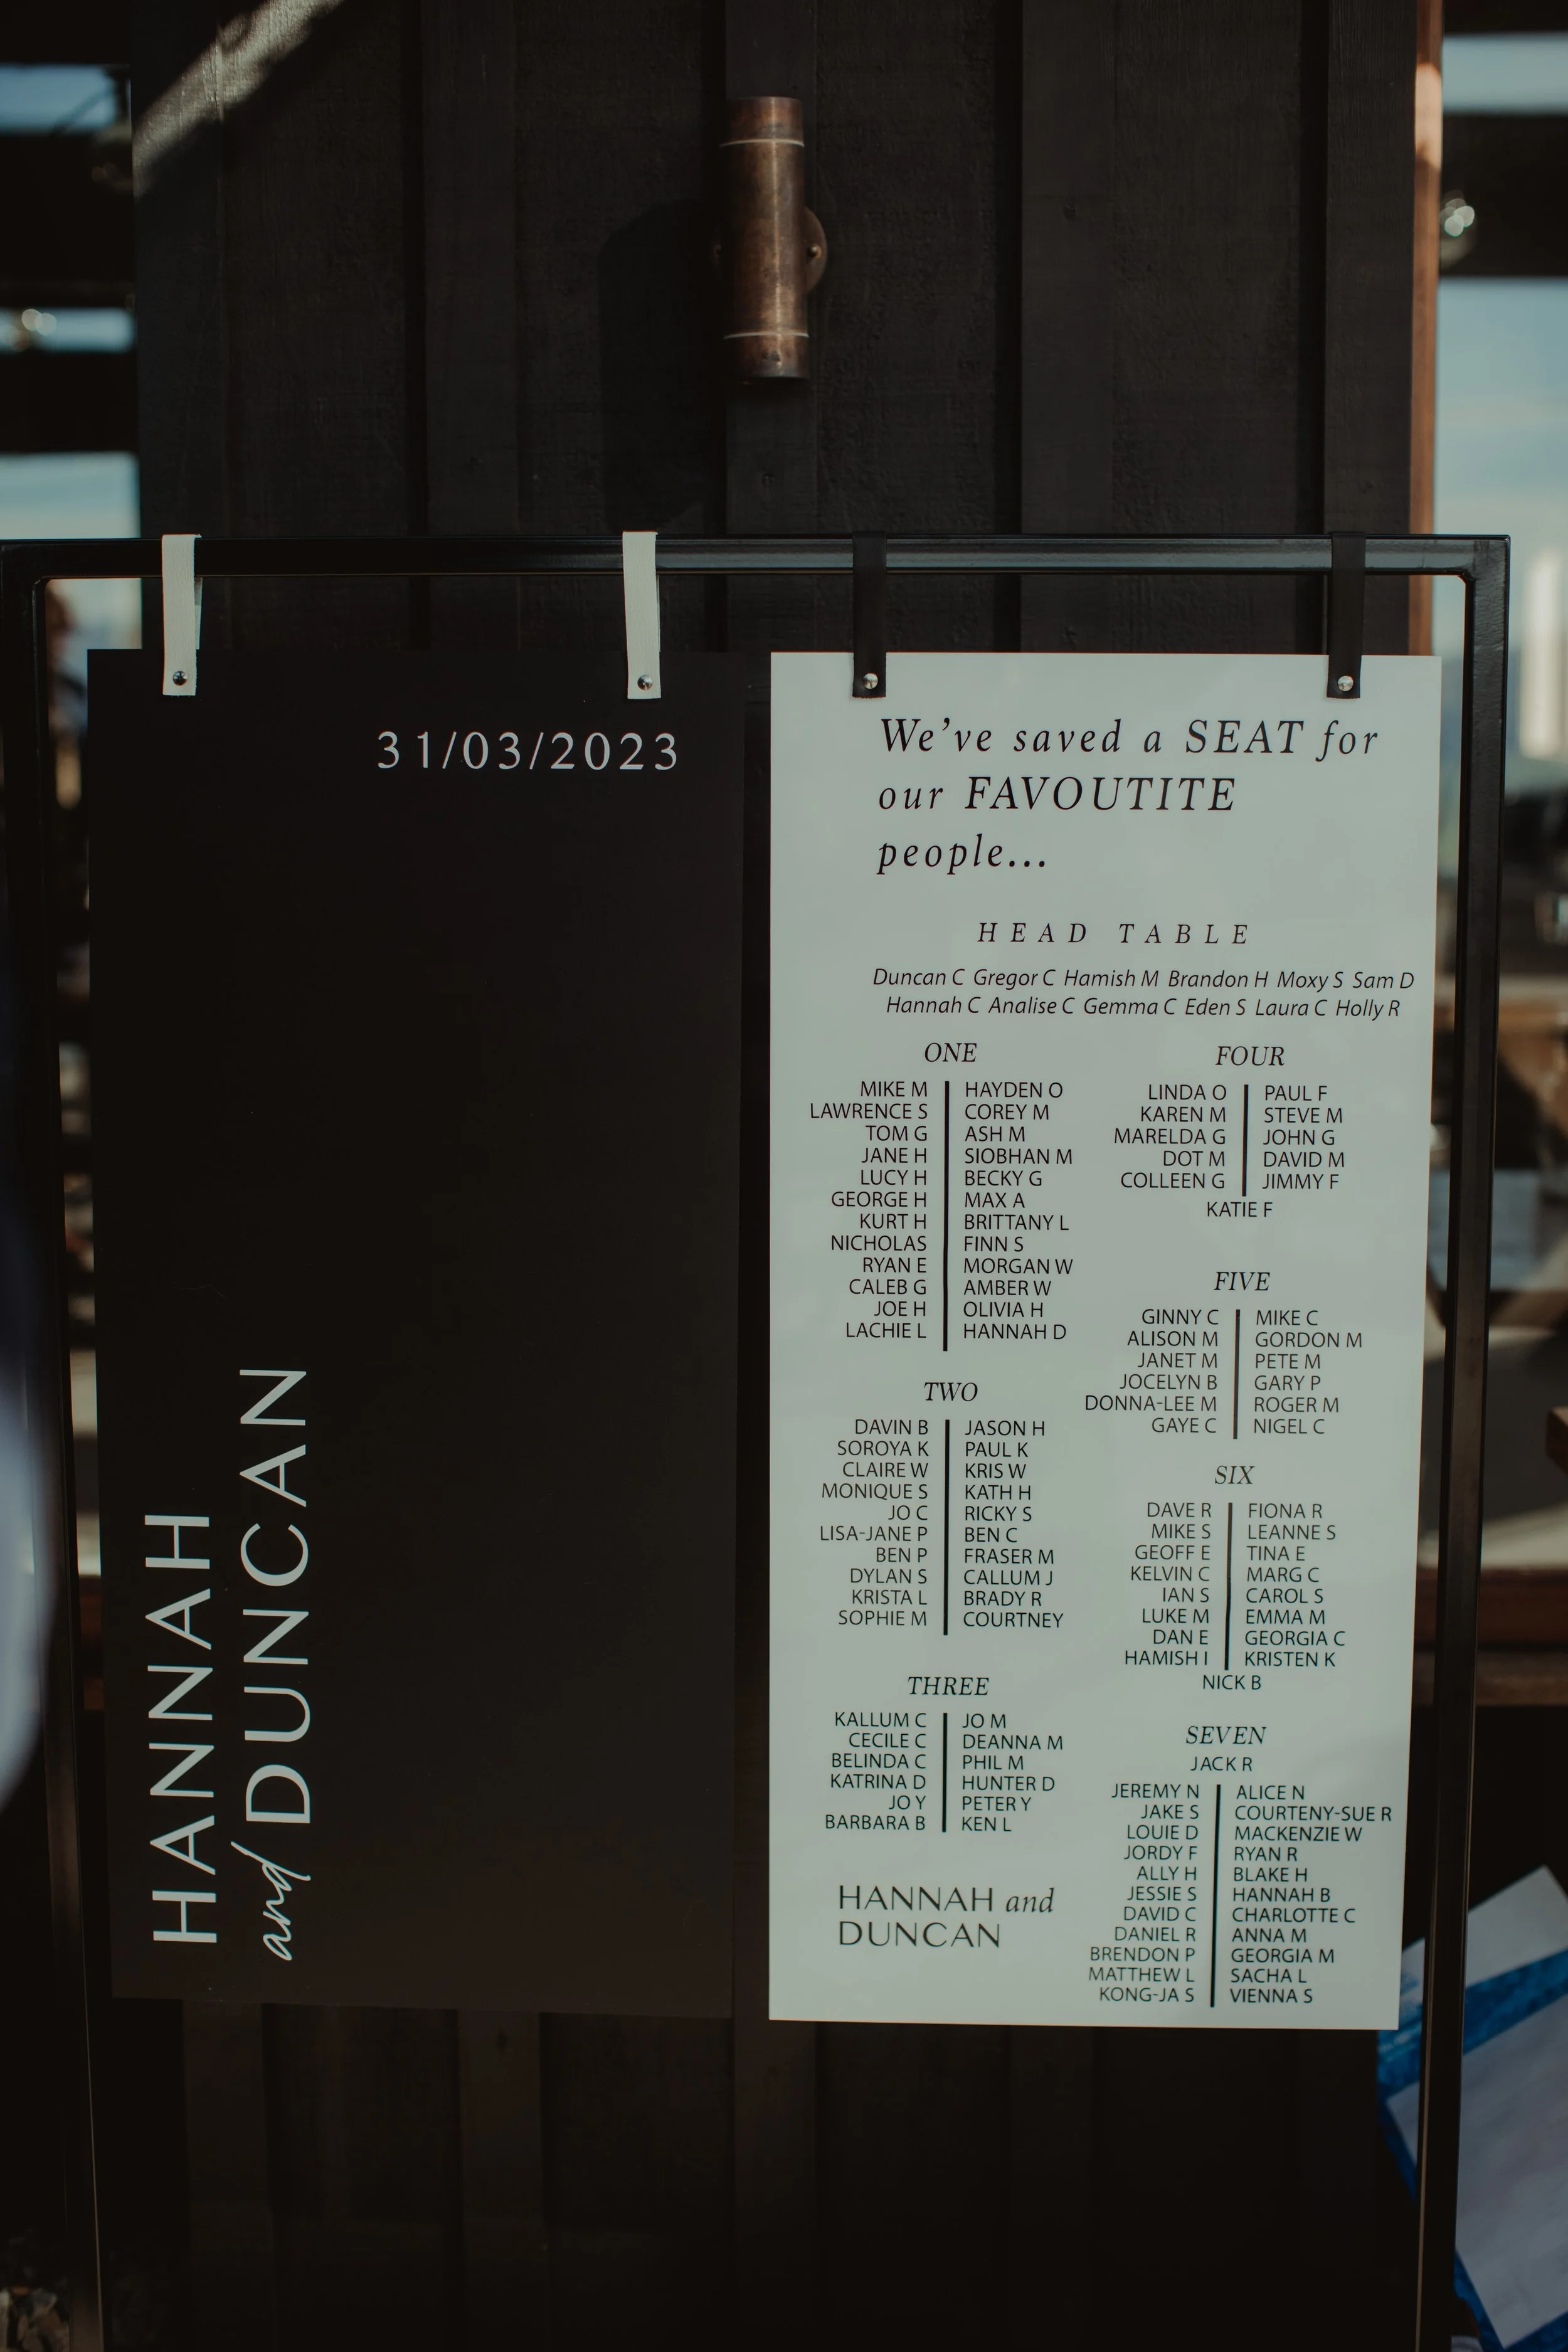 31/03/2023
HANNAH
and DUNCAN
We've saved a SEAT for
our FAVOUTITE
people...
HEAD TABLE
Duncan C Gregor C Hamish M Brandon H Moxy S Sam D
Hannah C Analise C Gemma C Eden S Laura C Holly R
ONE
MIKE M HAYDEN O
LAWRENCE S COREY M
TOM G ASH M
JANE H SIOBHAN M
LUCY H BECKY G
GEORGE H MAX A
KURT H BRITTANY L
NICHOLAS FINN S
RYAN E MORGAN W
CALEB G AMBER W
JOE H OLIVIA H
LACHIE L HANNAH D
TWO
DAVIN B JASON H
SOROYA K PAUL K
CLAIRE W KRIS W
MONIQUE S KATH H
JO C RICKY S
LISA-JANE P BEN C
BEN P FRASER M
DYLAN S CALLUM J
KRISTA L BRADY R
SOPHIE M COURTNEY
THREE
KALLUM C JO M
CECILE C DEANNA M
BELINDA C PHIL M
KATRINA D HUNTER D
JO Y PETER Y
BARBARA B KEN L
HANNAH and
DUNCAN
FOUR
LINDA O PAUL F
KAREN M STEVE M
MARELDA G JOHN G
DOT M DAVID M
COLLEEN G JIMMY F
KATIE F
FIVE
GINNY C MIKE C
ALISON M GORDON M
JANET M PETE M
JOCELYN B GARY P
DONNA-LEE M ROGER M
GAYE C NIGEL C
SIX
DAVE R FIONA R
MIKE S LEANNE S
GEOFF E TINA E
KELVIN C MARG C
IAN S CAROL S
LUKE M EMMA M
DAN E GEORGIA C
HAMISH I KRISTEN K
NICK B
SEVEN
JACK R
JEREMY N ALICE N
JAKE S COURTENY-SUE R
LOUIE D MACKENZIE W
JORDY F RYAN R
ALLY H BLAKE H
JESSIE S HANNAH B
DAVID C CHARLOTTE C
DANIEL R ANNA M
BRENDON P GEORGIA M
MATTHEW L SACHA L
KONG-JA S VIENNA S